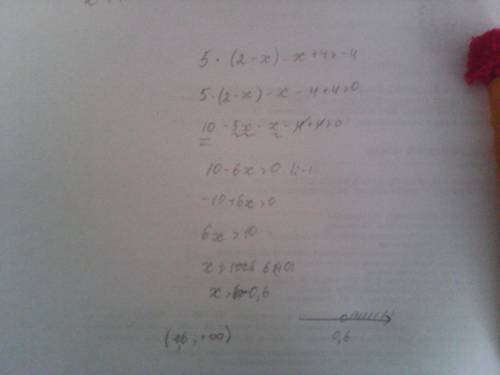 5 · (2-x) - x + 4 > -4
5 · (2-x) - x - 4 + 4 > 0
10 - 5x - x - 4 + 4 > 0
10 - 6x > 0 |: -1
-10 + 6x > 0
6x > 10
x >
x > 0,6
0,6
( , +∞)